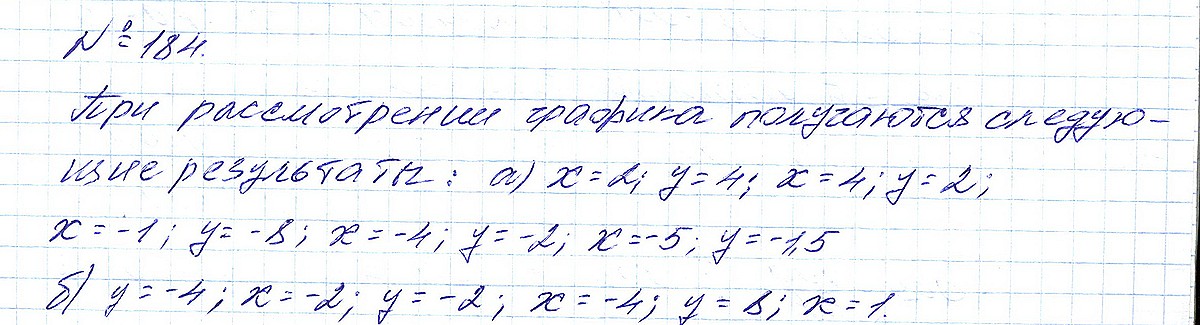 № 184.
При рассмотрении графика получаются следую-
щие результаты: а) x = 2; y = 4; x = 4; y = 2;
x = -1; y = -8; x = -4; y = -2; x = -5; y = -1,5
б) y = -4; x = -2; y = -2; x = -4; y = 8; x = 1.